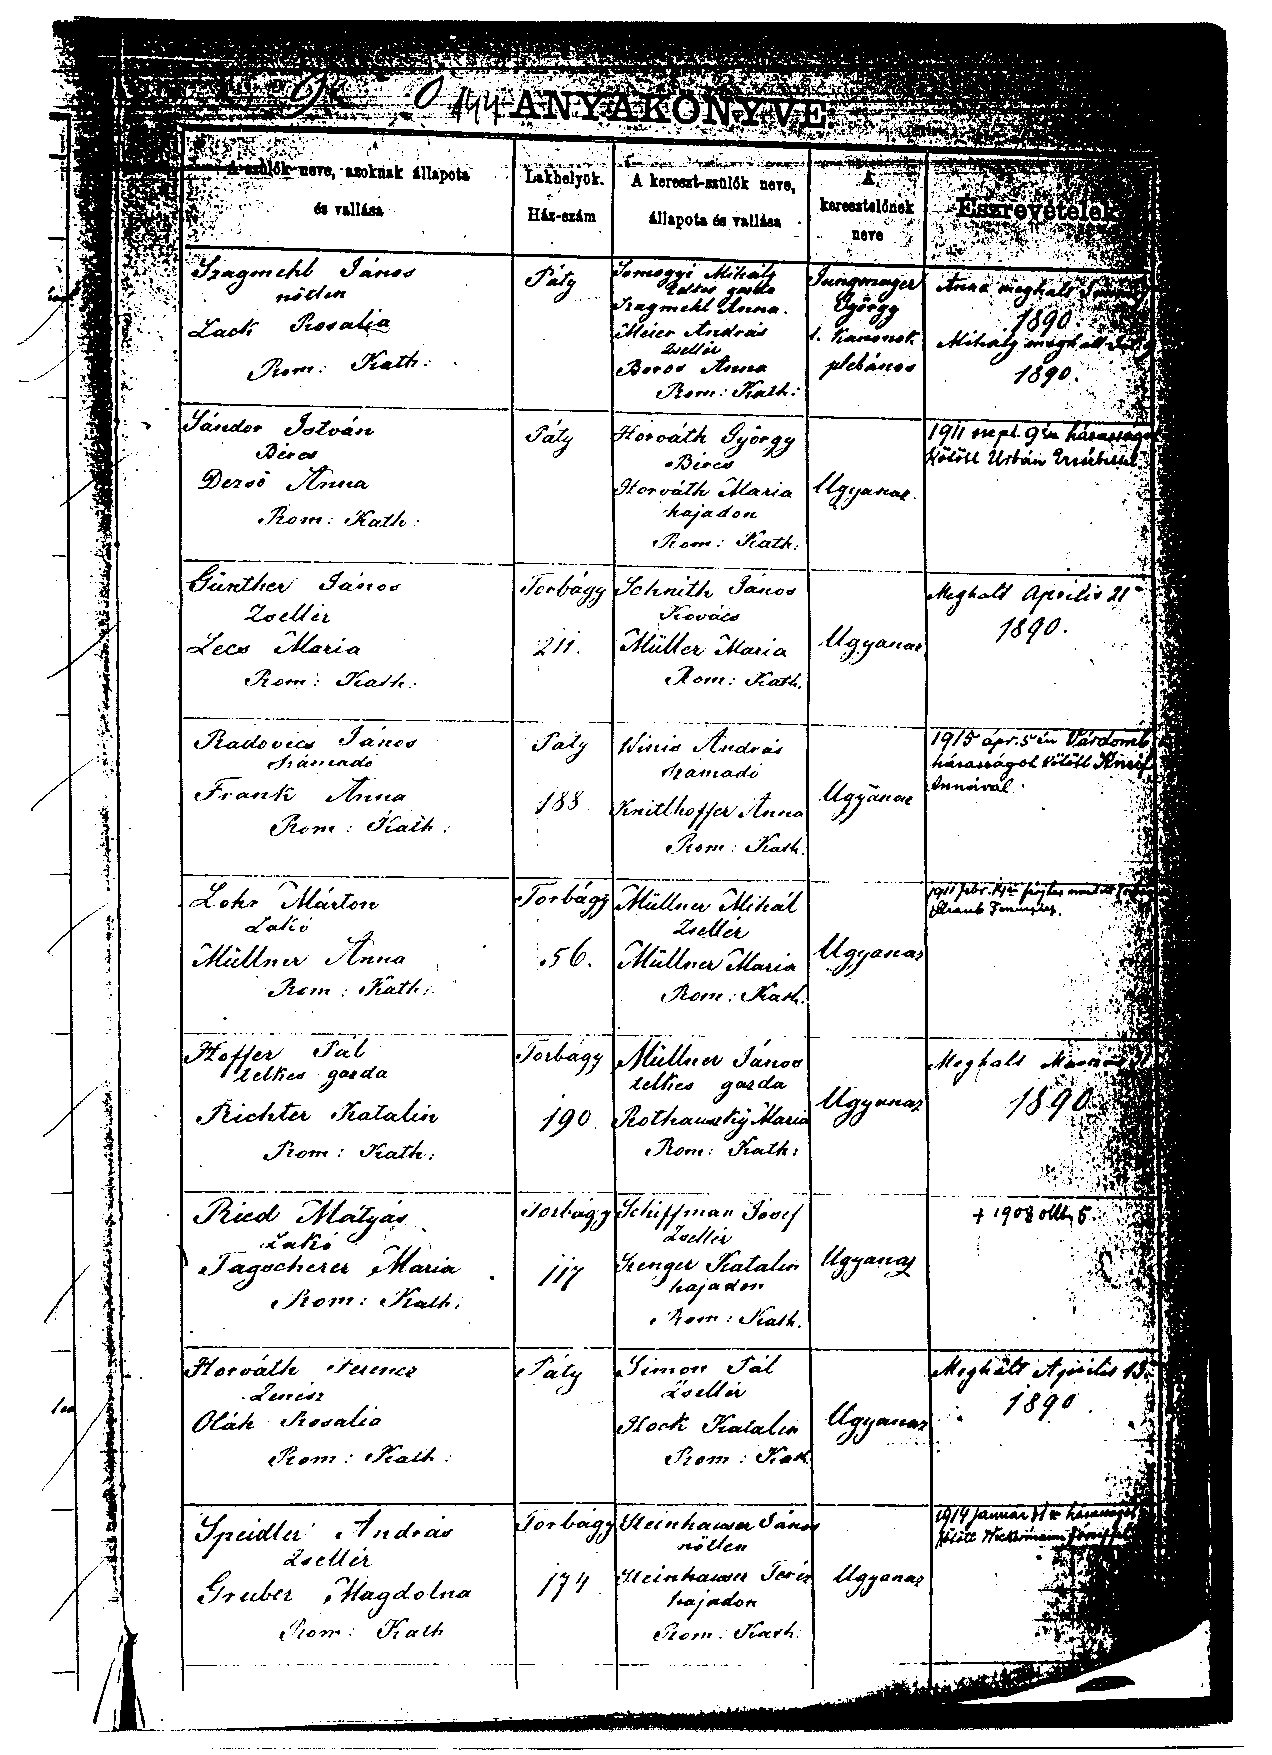 144 ANYAKÖNYVE.
A szülők neve, azoknak állapota
és vallása
Lakhelyök.
Ház-szám
A kereszt-szülők neve,
állapota és vallása
A
keresztelőnek
neve
Észrevételek
Szagmehl János
nőtlen
Lack Rosalia
Rom: Kath:
Páty
Somogyi Mihály
telkes gazda
Szagmehl Anna.
Meier András
Zsellér
Boros Anna
Rom: Kath:
Jungmayer
György
t. Kanonok
plébános
Anna meghalt
1890.
Mihály meghalt
1890.
Sándor István
Béres
Dezső Anna
Rom: Kath:
Páty
Horváth György
Béres
Horváth Maria
hajadon
Rom: Kath:
Ugyanaz.
1911 sept. 9én házasságot
kötött Urbán Erzsébettel
Günther János
Zsellér
Lecs Maria
Rom: Kath:
Torbágy
211.
Schmith János
Kovács
Müller Maria
Rom: Kath.
Ugyanaz
Meghalt Aprilis 21
1890.
Radovics János
számadó
Frank Anna
Rom: Kath:
Páty
188
Winis András
számadó
Knitlhoffer Anna
Rom: Kath.
Ugyanaz
1915 ápr. 5én Várdomb
házasságot kötött Kneif
Annával.
Lohr Márton
Lakó
Müllner Anna
Rom: Kath:
Torbágy
56.
Müllner Mihál
Zsellér
Müllner Maria
Rom: Kath.
Ugyanaz
1911 febr.
Hoffer Pál
telkes gazda
Richter Katalin
Rom: Kath:
Torbágy
190
Müllner János
telkes gazda
Rothauszky Maria
Rom: Kath:
Ugyanaz
Meghalt
1890
Ried Mátyás
Lakó
Tagscherer Maria
Rom: Kath:
Torbágy
117
Schiffman Josef
Zsellér
Szenger Katalin
hajadon
Rom: Kath.
Ugyanaz
+ 1908 okt. 5.
Horváth Ferencz
Zenész
Oláh Rosalia
Rom: Kath:
Páty
Simon Pál
Zsellér
Hock Katalin
Rom: Kath
Ugyanaz
Meghalt Aprilis 13.
1890.
Speidler András
Zsellér
Gruber Magdolna
Rom: Kath
Torbágy
174
Steinhauser János
nőtlen
Steinhauser Teréz
hajadon
Rom: Kath:
Ugyanaz
1914 Január házasságot
kötött